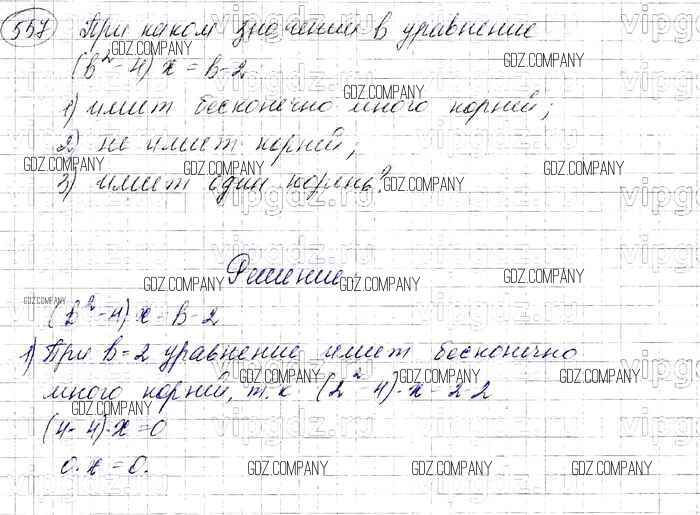 557 При каком значении в уравнение
(в² - 4) х = в - 2
1) имеет бесконечно много корней;
2) не имеет корней;
3) имеет один корень?
Решение
(в² - 4) х = в - 2
1) При в = 2 уравнение имеет бесконечно
много корней, т.к (2² - 4)·х = 2-2
(4 - 4)·х = 0
0·х = 0.
GDZ.COMPANY
vipgdz.ru